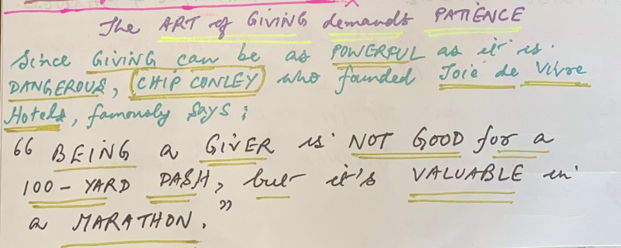 The ART of GIVING demands PATIENCE
Since GIVING can be as POWERFUL as it is
DANGEROUS, CHIP CONLEY who founded Joie de Vivre
Hotels, famously says;
“ BEING a GIVER is NOT GOOD for a
100-YARD DASH, but it's VALUABLE in
a MARATHON. ”